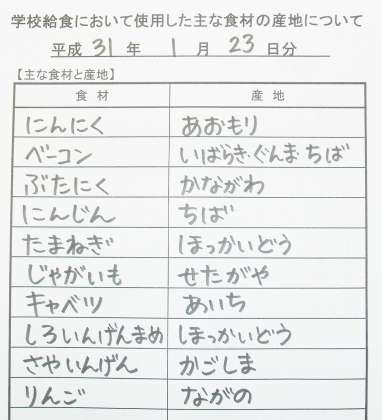 学校給食において使用した主な食材の産地について
平成 31 年 1 月 23 日分
【主な食材と産地】
食 材 産 地
にんにく あおもり
ベーコン いばらき・ぐんま・ちば
ぶたにく かながわ
にんじん ちば
たまねぎ ほっかいどう
じゃがいも せたがや
キャベツ あいち
しろいんげんまめ ほっかいどう
さやいんげん かごしま
りんご ながの